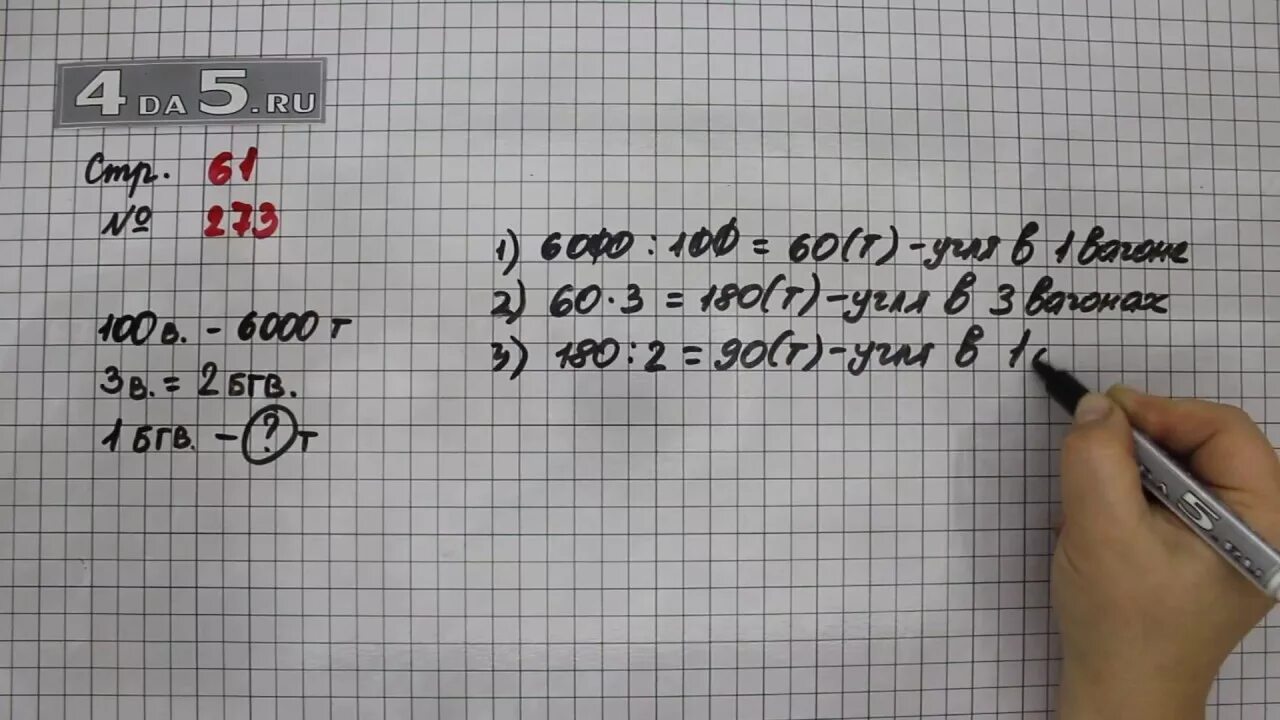 4DA5.RU
Стр. 61
№ 273
100в. - 6000 т
3в. = 2 БГВ.
1 БГВ. - ? т
1) 6000 : 100 = 60(т) - угля в 1 вагоне
2) 60 · 3 = 180(т) - угля в 3 вагонах
3) 180 : 2 = 90(т) - угля в 1
DA 5.RU